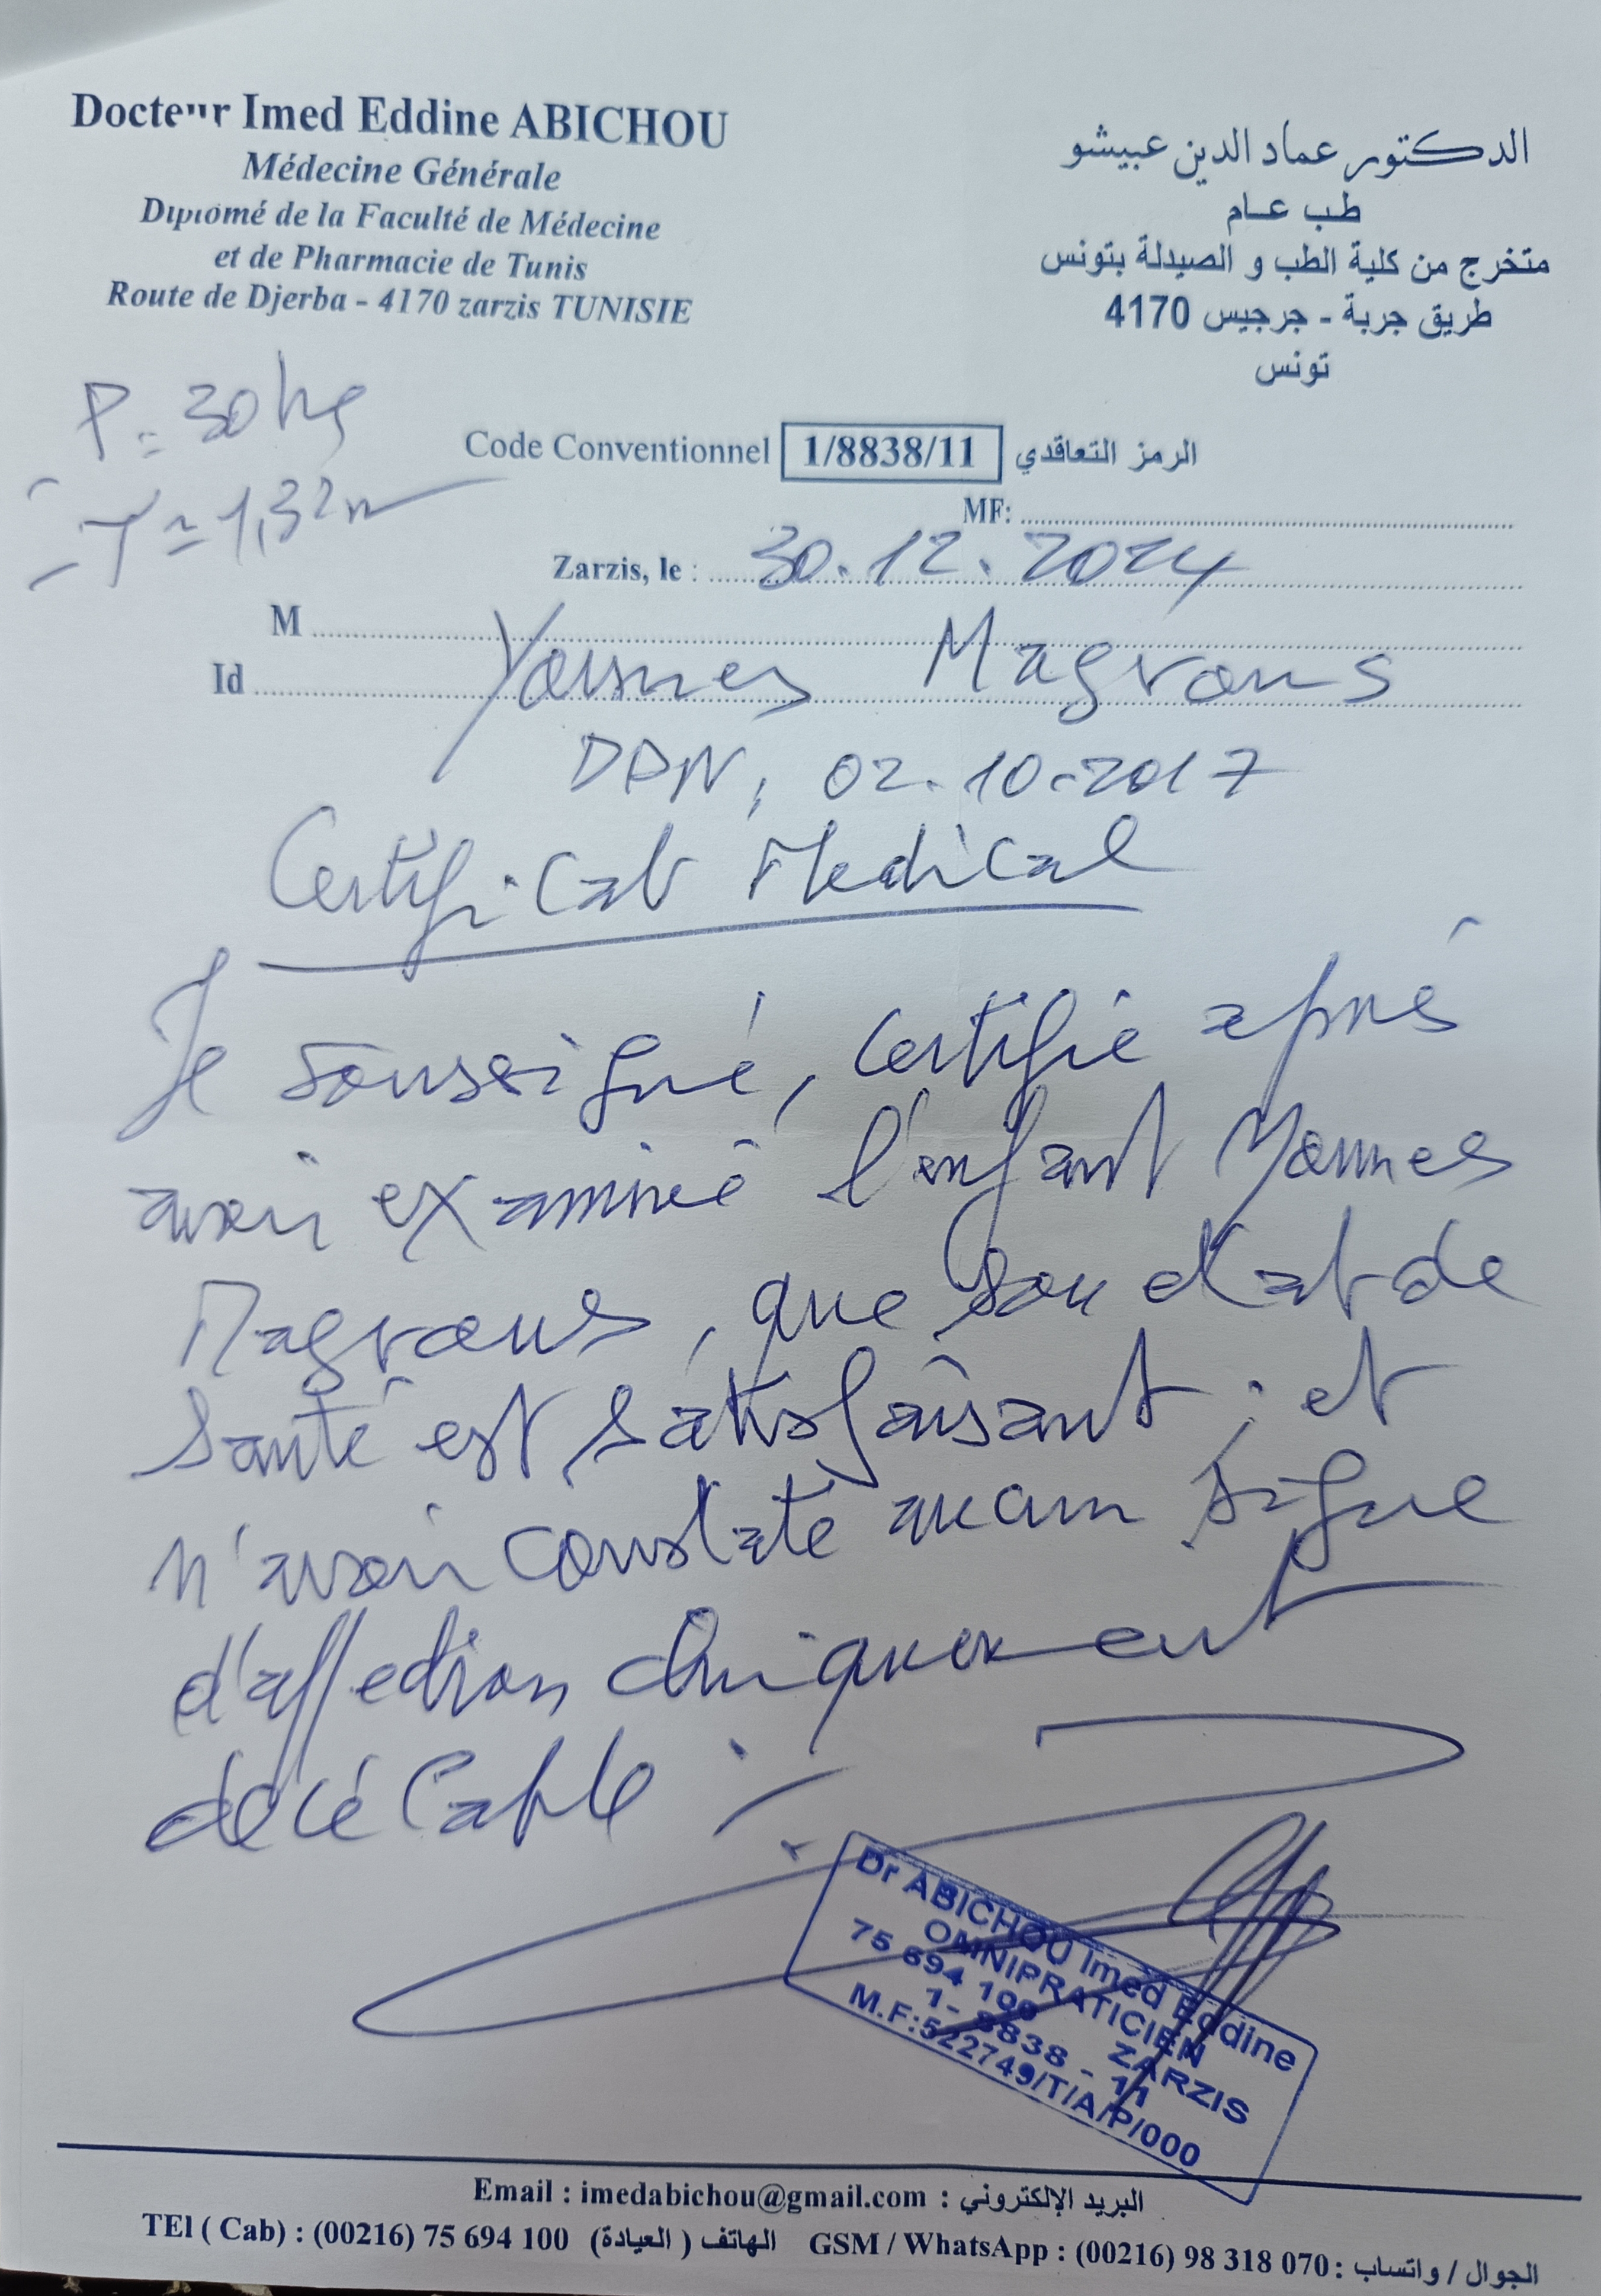 Docteur Imed Eddine ABICHOU
Médecine Générale
Diplomé de la Faculté de Médecine
et de Pharmacie de Tunis
Route de Djerba - 4170 zarzis TUNISIE
الدكتور عماد الدين عبيشو
طب عام
متخرج من كلية الطب و الصيدلة بتونس
طريق جربة - جرجيس 4170
تونس
P = 30 kg
T = 1,32 m
Code Conventionnel 1/8838/11 الرمز التعاقدي
MF:
Zarzis, le : 30.12.2024
M
Id Younes Magrous
DDN, 02.10.2017
Certificat Medical
Je soussigné, certifie après
avoir examiné l'enfant Younes
Magrous, que son etat de
santé est satisfaisant ; et
n'avoir constaté aucun signe
d'affection cliniquement
décélable
Dr ABICHOU Imed Eddine
OMNIPRATICIEN
75 694 100 ZARZIS
1- 8838 - 11
M.F:522749/T/A/P/000
Email : imedabichou@gmail.com : البريد الإلكتروني
TEl ( Cab) : (00216) 75 694 100 الهاتف ( العيادة) GSM / WhatsApp : (00216) 98 318 070 : الجوال / واتساب